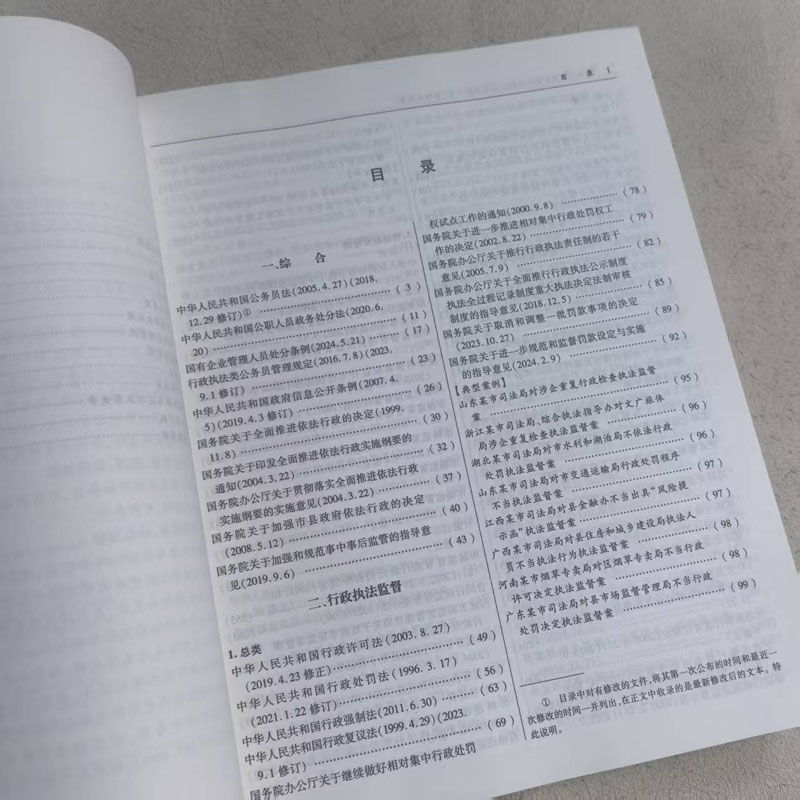 目 录 1
目 录
一.综 合
中华人民共和国公务员法(2005.4.27)(2018.
12.29 修订)① (3)
中华人民共和国公职人员政务处分法(2020.6.
20) (11)
国有企业管理人员处分条例(2024.5.21) (17)
行政执法类公务员管理规定(2016.7.8)(2023.
9.1 修订) (23)
中华人民共和国政府信息公开条例(2007.4.
5)(2019.4.3 修订) (26)
国务院关于全面推进依法行政的决定(1999.
11.8) (30)
国务院关于印发全面推进依法行政实施纲要的
通知(2004.3.22) (32)
国务院办公厅关于贯彻落实全面推进依法行政
实施纲要的实施意见(2004.3.22) (37)
国务院关于加强市县政府依法行政的决定
(2008.5.12) (40)
国务院关于加强和规范事中事后监管的指导意
见(2019.9.6) (43)
二.行政执法监督
1. 总类
中华人民共和国行政许可法(2003.8.27)
(2019.4.23 修正) (49)
中华人民共和国行政处罚法(1996.3.17)
(2021.1.22 修订) (56)
中华人民共和国行政强制法(2011.6.30) (63)
中华人民共和国行政复议法(1999.4.29)(2023.
9.1 修订) (69)
国务院办公厅关于继续做好相对集中行政处罚
权试点工作的通知(2000.9.8) (78)
国务院关于进一步推进相对集中行政处罚权工
作的决定(2002.8.22) (79)
国务院办公厅关于推行行政执法责任制的若干
意见(2005.7.9) (82)
国务院办公厅关于全面推行行政执法公示制度
执法全过程记录制度重大执法决定法制审核
制度的指导意见(2018.12.5) (85)
国务院关于取消和调整一批罚款事项的决定
(2023.10.27) (89)
国务院关于进一步规范和监督罚款设定与实施
的指导意见(2024.2.9) (92)
【典型案例】
山东某市司法局对涉企重复行政检查执法监督
案 (95)
浙江某市司法局、综合执法指导办对文广旅体
局涉企重复检查执法监督案 (96)
湖北某市司法局对市水利和湖泊局不依法行政
处罚执法监督案 (96)
山东某市司法局对市交通运输局行政处罚程序
不当执法监督案 (97)
江西某市司法局对县金融办不当出具“风险提
示函”执法监督案 (97)
广西某市司法局对县住房和城乡建设局执法人
员不当执法行为执法监督案 (98)
河南某市烟草专卖局对区烟草专卖局不当行政
许可决定执法监督案 (98)
广东某市司法局对县市场监督管理局不当行政
处罚决定执法监督案 (99)
① 目录中对有修改的文件,将其第一次公布的时间和最近一
次修改的时间一并列出,在正文中收录的是最新修改后的文本。特
此说明。